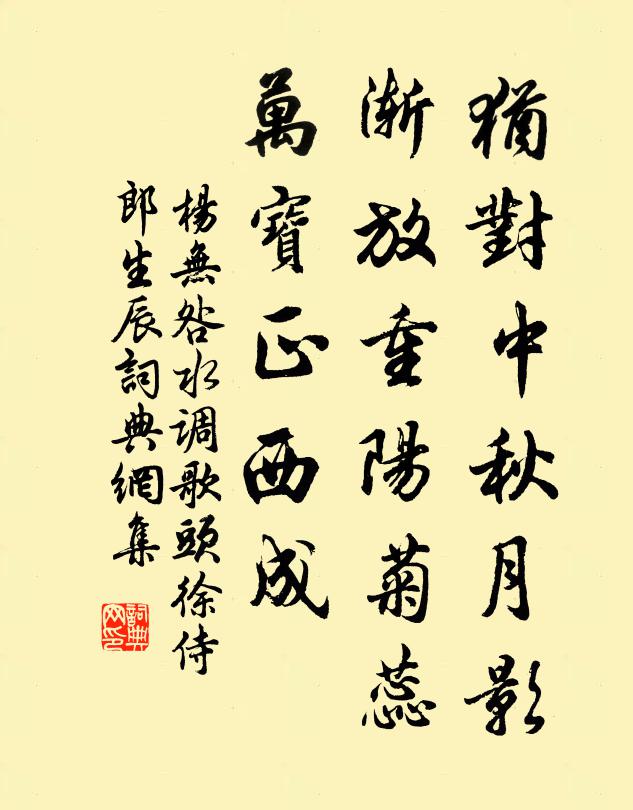 猶對中秋月影
漸放重陽菊蕊
萬寶正西成
楊無咎水调歌頭徐侍
郎生辰詞典網集
詞典
网印